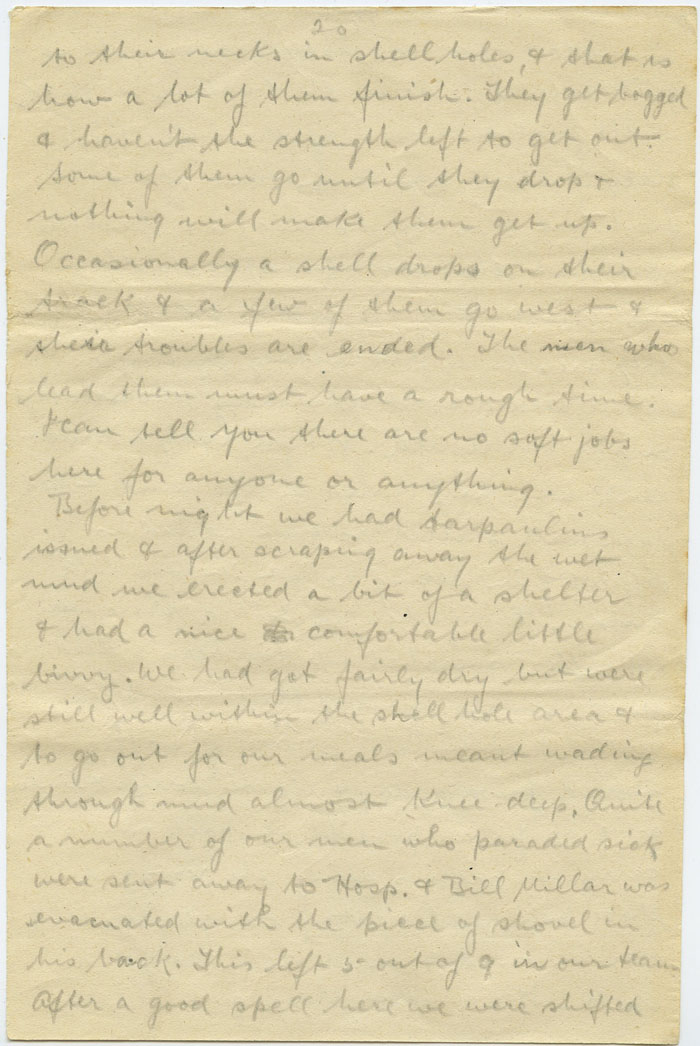 20
to their necks in shell holes, & that is
how a lot of them finish. They get bogged
& haven't the strength left to get out.
Some of them go until they drop &
nothing will make them get up.
Occasionally a shell drops on their
track & a few of them go west &
their troubles are ended. The men who
lead them must have a rough time.
I can tell you there are no soft jobs
here for anyone or anything.
Before night we had tarpaulins
issued & after scraping away the wet
mud we erected a bit of a shelter
& had a nice comfortable little
bivvy. We had got fairly dry but were
still well within the shell hole area &
to go out for our meals meant wading
through mud almost knee deep. Quite
a number of our men who paraded sick
were sent away to Hosp. & Bill Millar was
evacuated with the piece of shovel in
his back. This left 5 out of 9 in our team
After a good spell here we were shifted